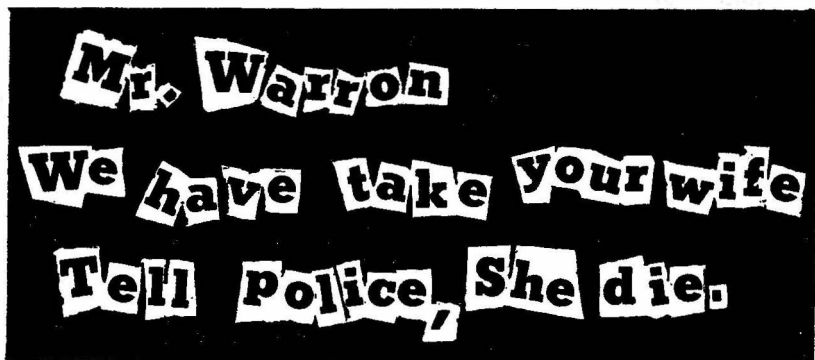 Mr. Warron
We have take your wife
Tell police, She die.